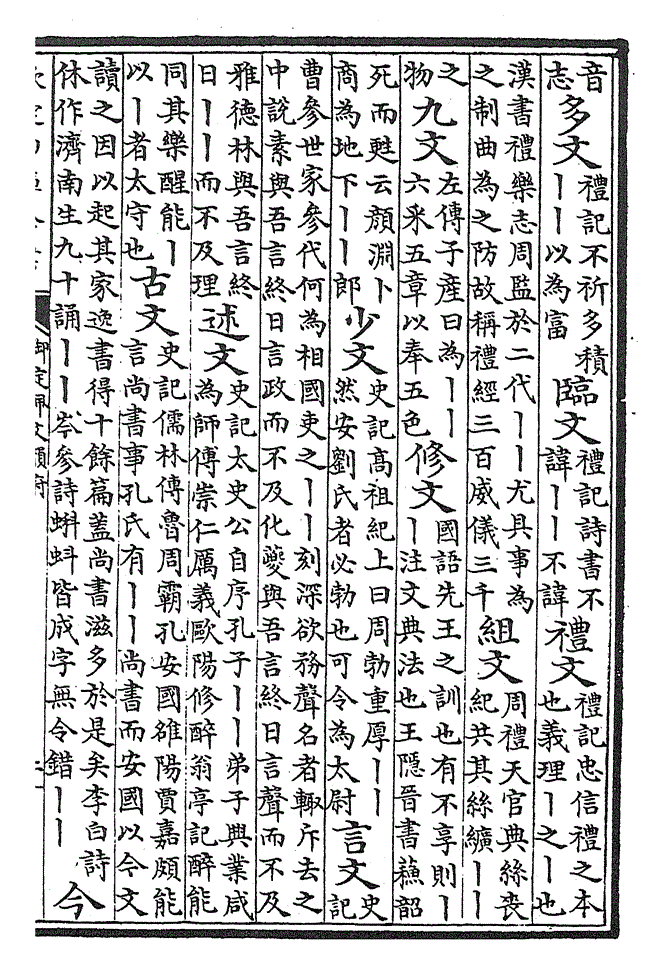 音志多文禮記不祈多積丨丨以為富臨文禮記詩書不諱丨丨不諱禮文禮記忠信禮之本也義理丨之丨也
漢書禮樂志周監於二代丨丨尤具事為之制曲為之防故稱禮經三百威儀三千組文周禮天官典絲喪紀共其絲纊丨丨
之物九文左傳子產曰為丨丨六采五章以奉五色修文國語先王之訓也有不享則丨丨注文典法也王隱晉書蘓韶
死而甦云顔淵卜商為地下丨丨郎少文史記高祖紀上曰周勃重厚丨丨然安劉氏者必勃也可令為太尉言文史記
曹參世家參代何為相國吏之丨丨刻深欲務聲名者輙斥去之中說素與吾言終日言政而不及化夔與吾言終日言聲而不及
雅德林與吾言終日丨丨而不及理述文史記太史公自序孔子丨丨弟子興業咸為師傅崇仁厲義歐陽修醉翁亭記醉能
同其樂醒能丨以丨者太守也古文史記儒林傳魯周霸孔安國雒陽賈嘉頗能言尚書事孔氏有丨丨尚書而安國以今文
讀之因以起其家逸書得十餘篇蓋尚書滋多於是矣李白詩伏作濟南生九十誦丨丨岑參詩蝌蚪皆成字無令錯丨丨今